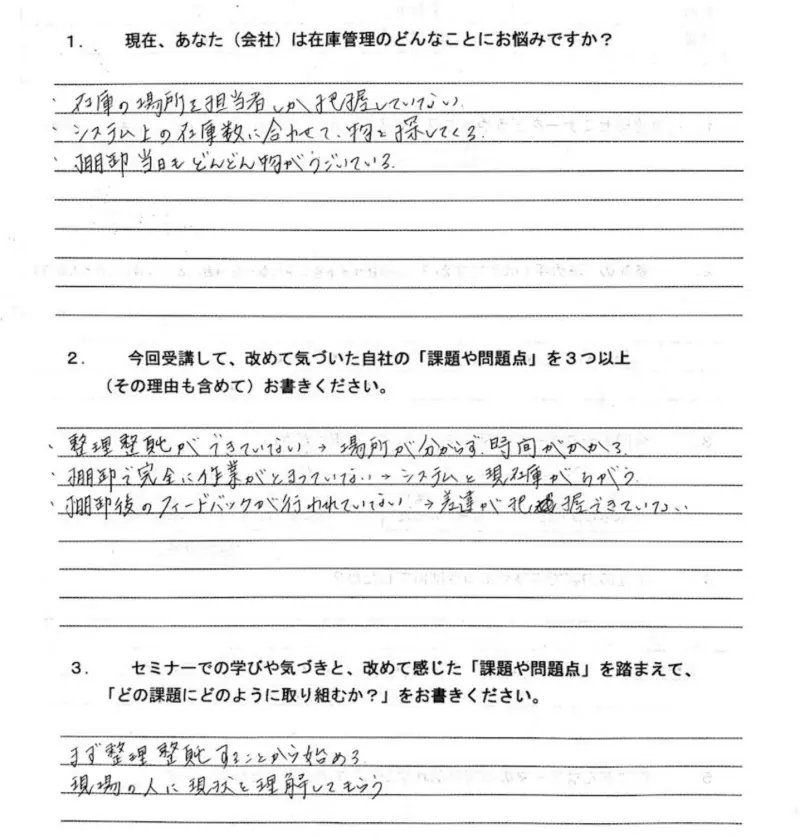 1. 現在、あなた（会社）は在庫管理のどんなことにお悩みですか？
・在庫の場所を担当者しか把握していない
・システム上の在庫数に合わせて、物を探してくる
・棚卸当日もどんどん物がうごいている
2. 今回受講して、改めて気づいた自社の「課題や問題点」を３つ以上
（その理由も含めて）お書きください。
・整理整頓ができていない→場所が分からず時間がかかる
・棚卸で完全に作業がとまっていない→システムと現在庫がちがう
・棚卸後のフィードバックが行われていない→差違が把握できていない
3. セミナーでの学びや気づきと、改めて感じた「課題や問題点」を踏まえて、
「どの課題にどのように取り組むか？」をお書きください。
まず整理整頓することから始める
現場の人に現状を理解してもらう